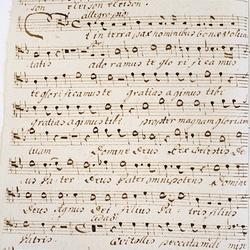 son eleison eleison.
Allegro
Et in terra pax hominibus bonæ volun
tatis adoramus te glorificamus
te glorificamus te gratias agimus tibi
gratias agimus tibi propter magnam gloriam
tuam Domine Deus Rex Coelestis De
us Pater Deus Pater omnipotens Domine
Deus Agnus Dei filius Patris filius
Patris. Qui tollis peccata mundi mi